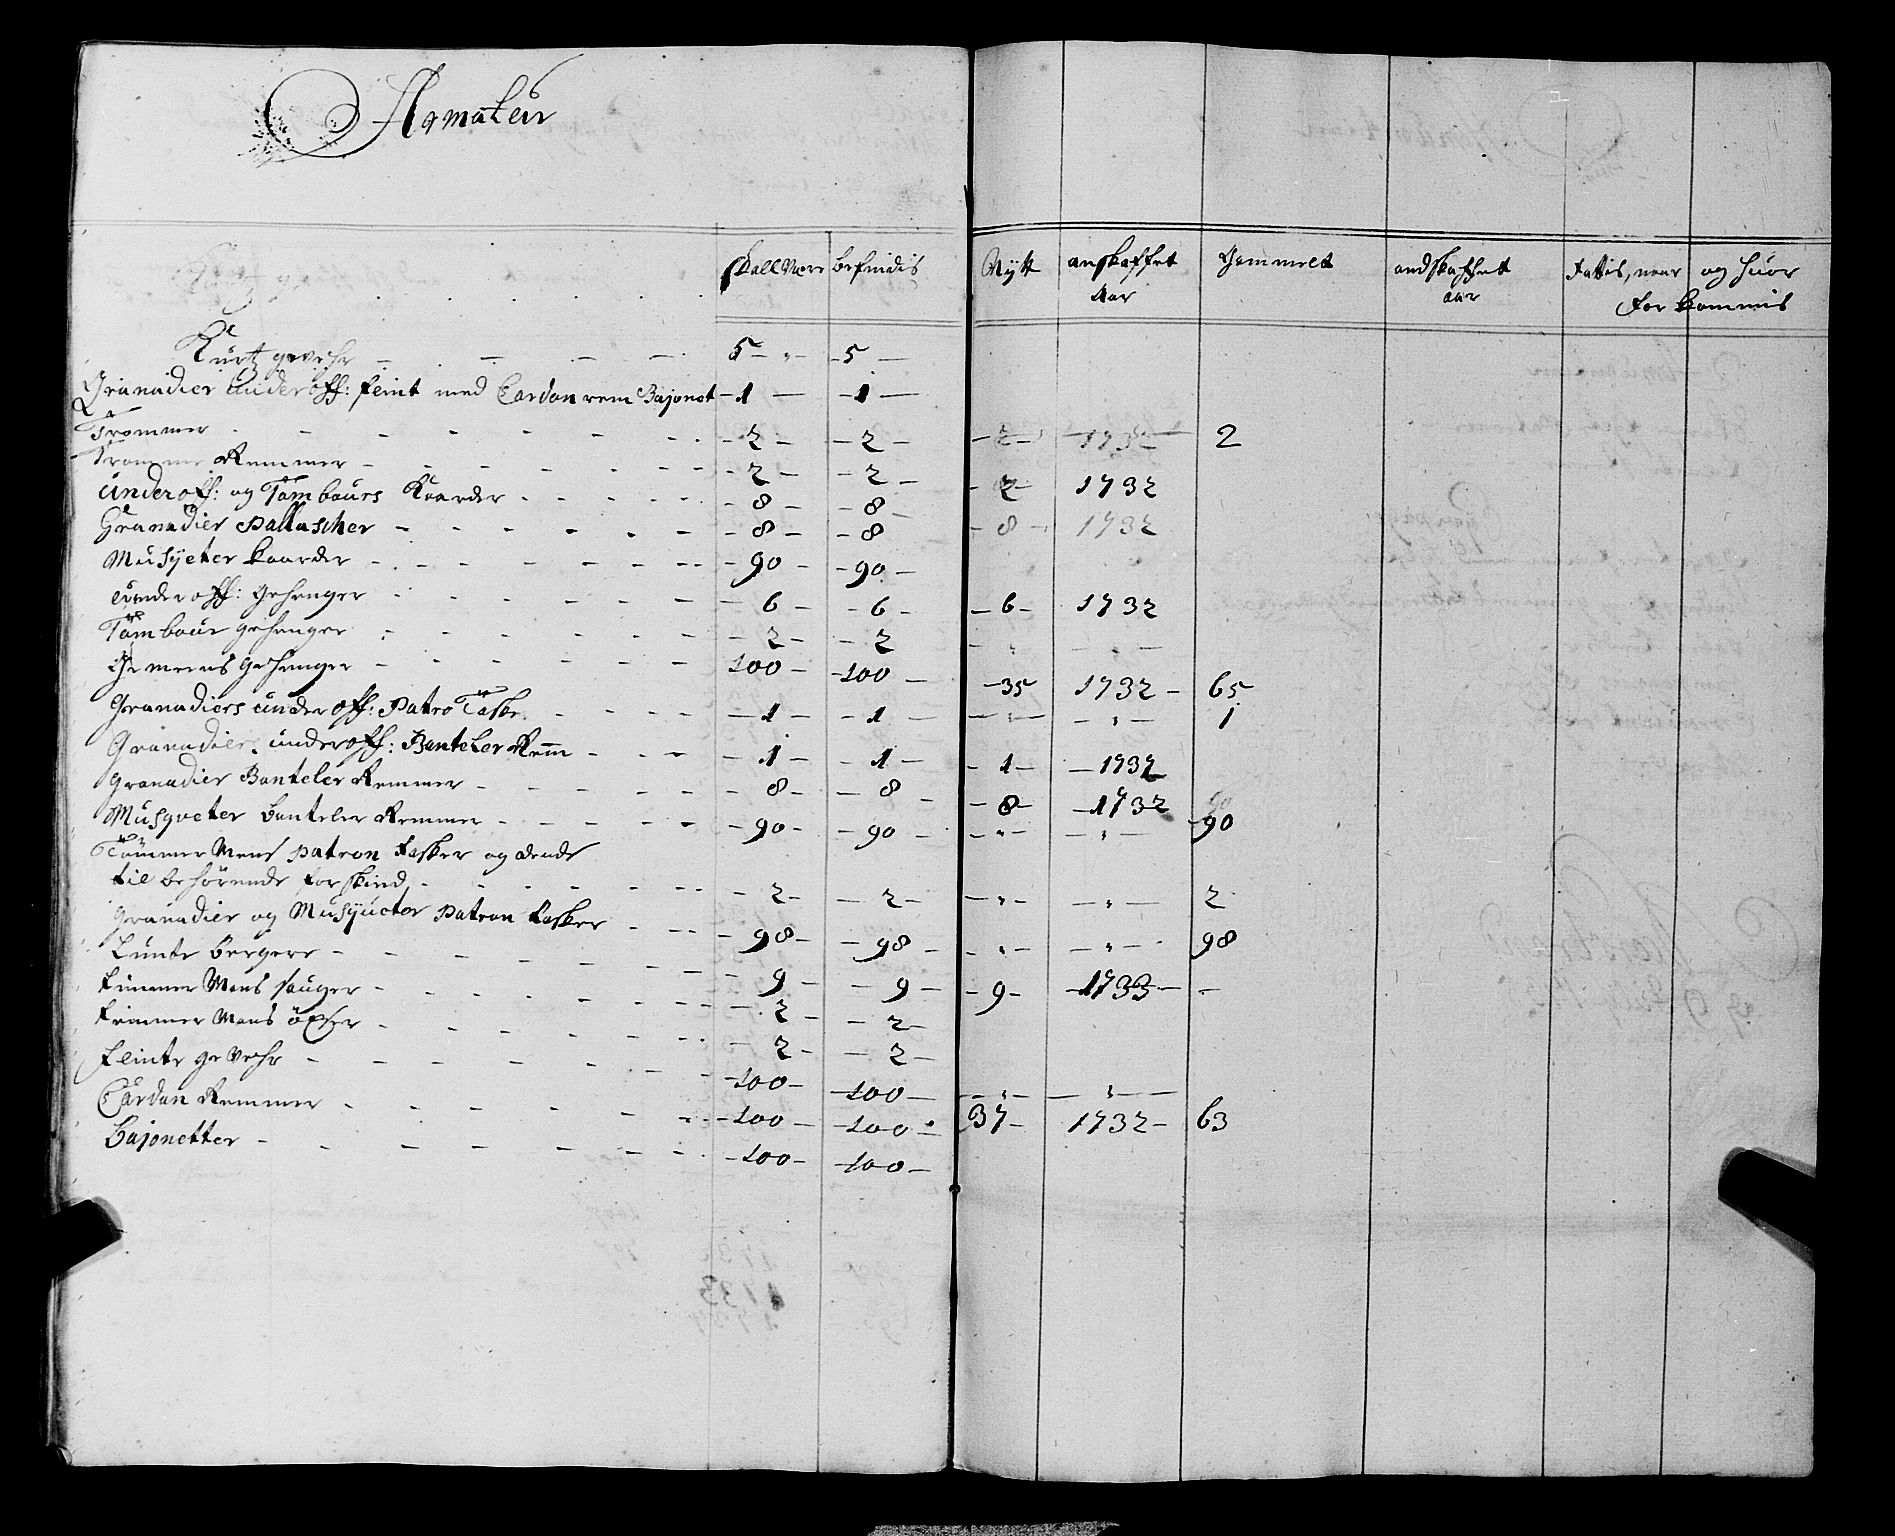 Armatur
skall være befindis Nÿtt anskaffet Gammelt andskaffet fattis, naar og huor
Aar aar for kommis
Kurtz gevehr - - - - 5 - " - - 5 -
Granadier under off: flint med Cardon rem Bajonet - 1 - - 1 -
Trommer - - - - - - - 2 - - 2 - - 2 - - 1732 - 2
Tromme Remmer - - - - - - 2 - - 2 -
under off: og Tambours Kaarder - - - - - 8 - - 8 - - 2 - 1732
Granadier Pallascher - - - - - - 8 - - 8 - - 8 - 1732
Musqueter kaarder - - - - - - 90 - - 90 -
under off: gehenger - - - - - - 6 - - 6 - - 6 - 1732
Tambour gehenger - - - - - - 2 - - 2 - - " - - " -
Gemeens gehenger - - - - - - 100 - - 100 - - 35 1732 - 65
Granadiers under off: Patro Taske - - - - - 1 - - 1 - - " - - " - 1
Granadiers under off: Banteler Rem - - - - 1 - - 1 - - 1 - - 1732
Granadier Banteler Remmer - - - - - 8 - - 8 - - 8 - - 1732
Musqveter banteler Remmer - - - - - 90 - - 90 - - " - - " - 90
Tømmer Mens patron tasker og dend
til behørende forskind - - - - - - 2 - - 2 - - " - - " - 2
Granadier og Musqueter Patron tasker - - - 98 - - 98 - - " - - " - 98
Lunte bergere - - - - - - - 9 - - 9 - - 9 - - 1733 - -
timmer Mens sauger - - - - - - 2 - - 2 -
timmer Mens öxser - - - - - - 2 - - 2 -
flinte ge Vehr - - - - - - 100 - - 100 - - " - - " -
Cardon Remmer - - - - - - 100 - - 100 - 37 - 1732 - 63
bajonetter - - - - - - 100 - - 100 -